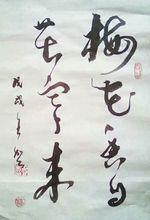 梅花香自
苦寒来
戊戌年